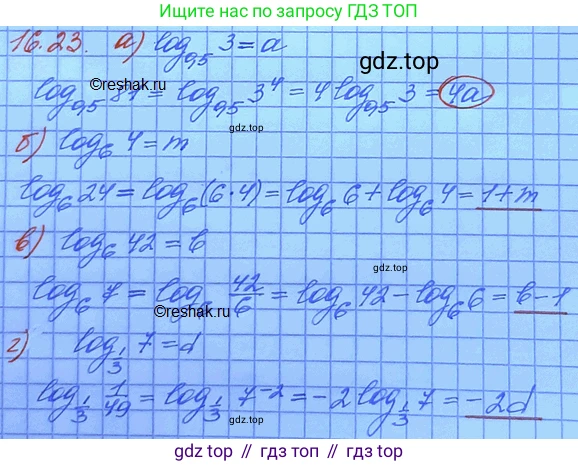 Ищите нас по запросу ГДЗ ТОП
16.23. а) log_{0,5} 3 = a
©reshak.ru
gdz.top
log_{0,5} 81 = log_{0,5} 3^4 = 4 log_{0,5} 3 = 4a
gdz.top
б) log_6 4 = m
log_6 24 = log_6 (6·4) = log_6 6 + log_6 4 = 1+m
gdz.top
в) log_6 42 = b
log_6 7 = log_6 42/6 = log_6 42 - log_6 6 = b-1
©reshak.ru
gdz.top
г) log_{1/3} 7 = d
log_{1/3} 1/49 = log_{1/3} 7^{-2} = -2 log_{1/3} 7 = -2d
gdz.top // gdz.top // gdz.top // gdz.top